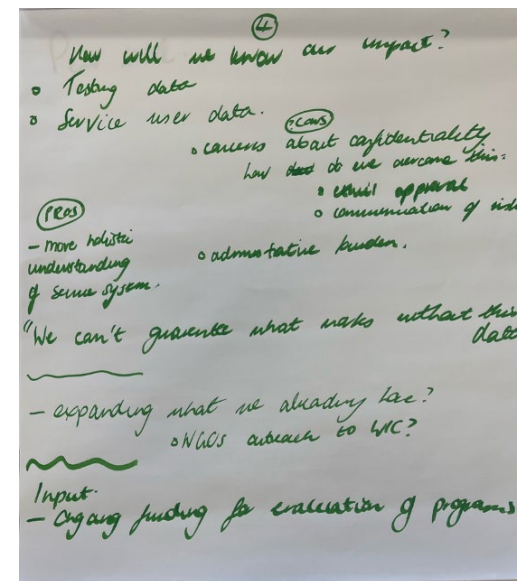 4
How will we know our impact?
o Testing data
o Service user data.
CONS
o concerns about confidentiality
how do we overcome this:
o email approval
o communication of risk
PROS
- more holistic
understanding
of service system.
o administrative burden.
"We can't guarantee what works without this
data
- expanding what we already have?
o NGOs outreach to WIC?
Input.
- Ongoing funding for evaluation of programs